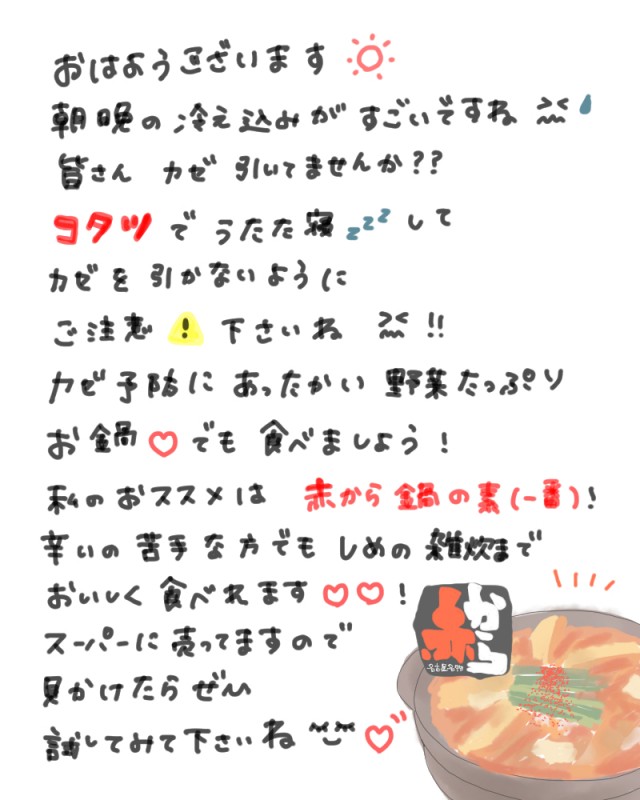 おはようございます
朝晩の冷え込みがすごいですね
皆さん カゼ 引いてませんか??
コタツでうたた寝zzzして
カゼを引かないように
ご注意!下さいね !!
カゼ予防にあったかい野菜たっぷり
お鍋♡でも食べましょう!
私のおススメは 赤から鍋の素(一番)!
辛いの苦手な方でもしめの雑炊まで
おいしく食べれます♡♡!
スーパーに売ってますので
見かけたらぜひ
試してみて下さいね♡
赤から
名古屋名物